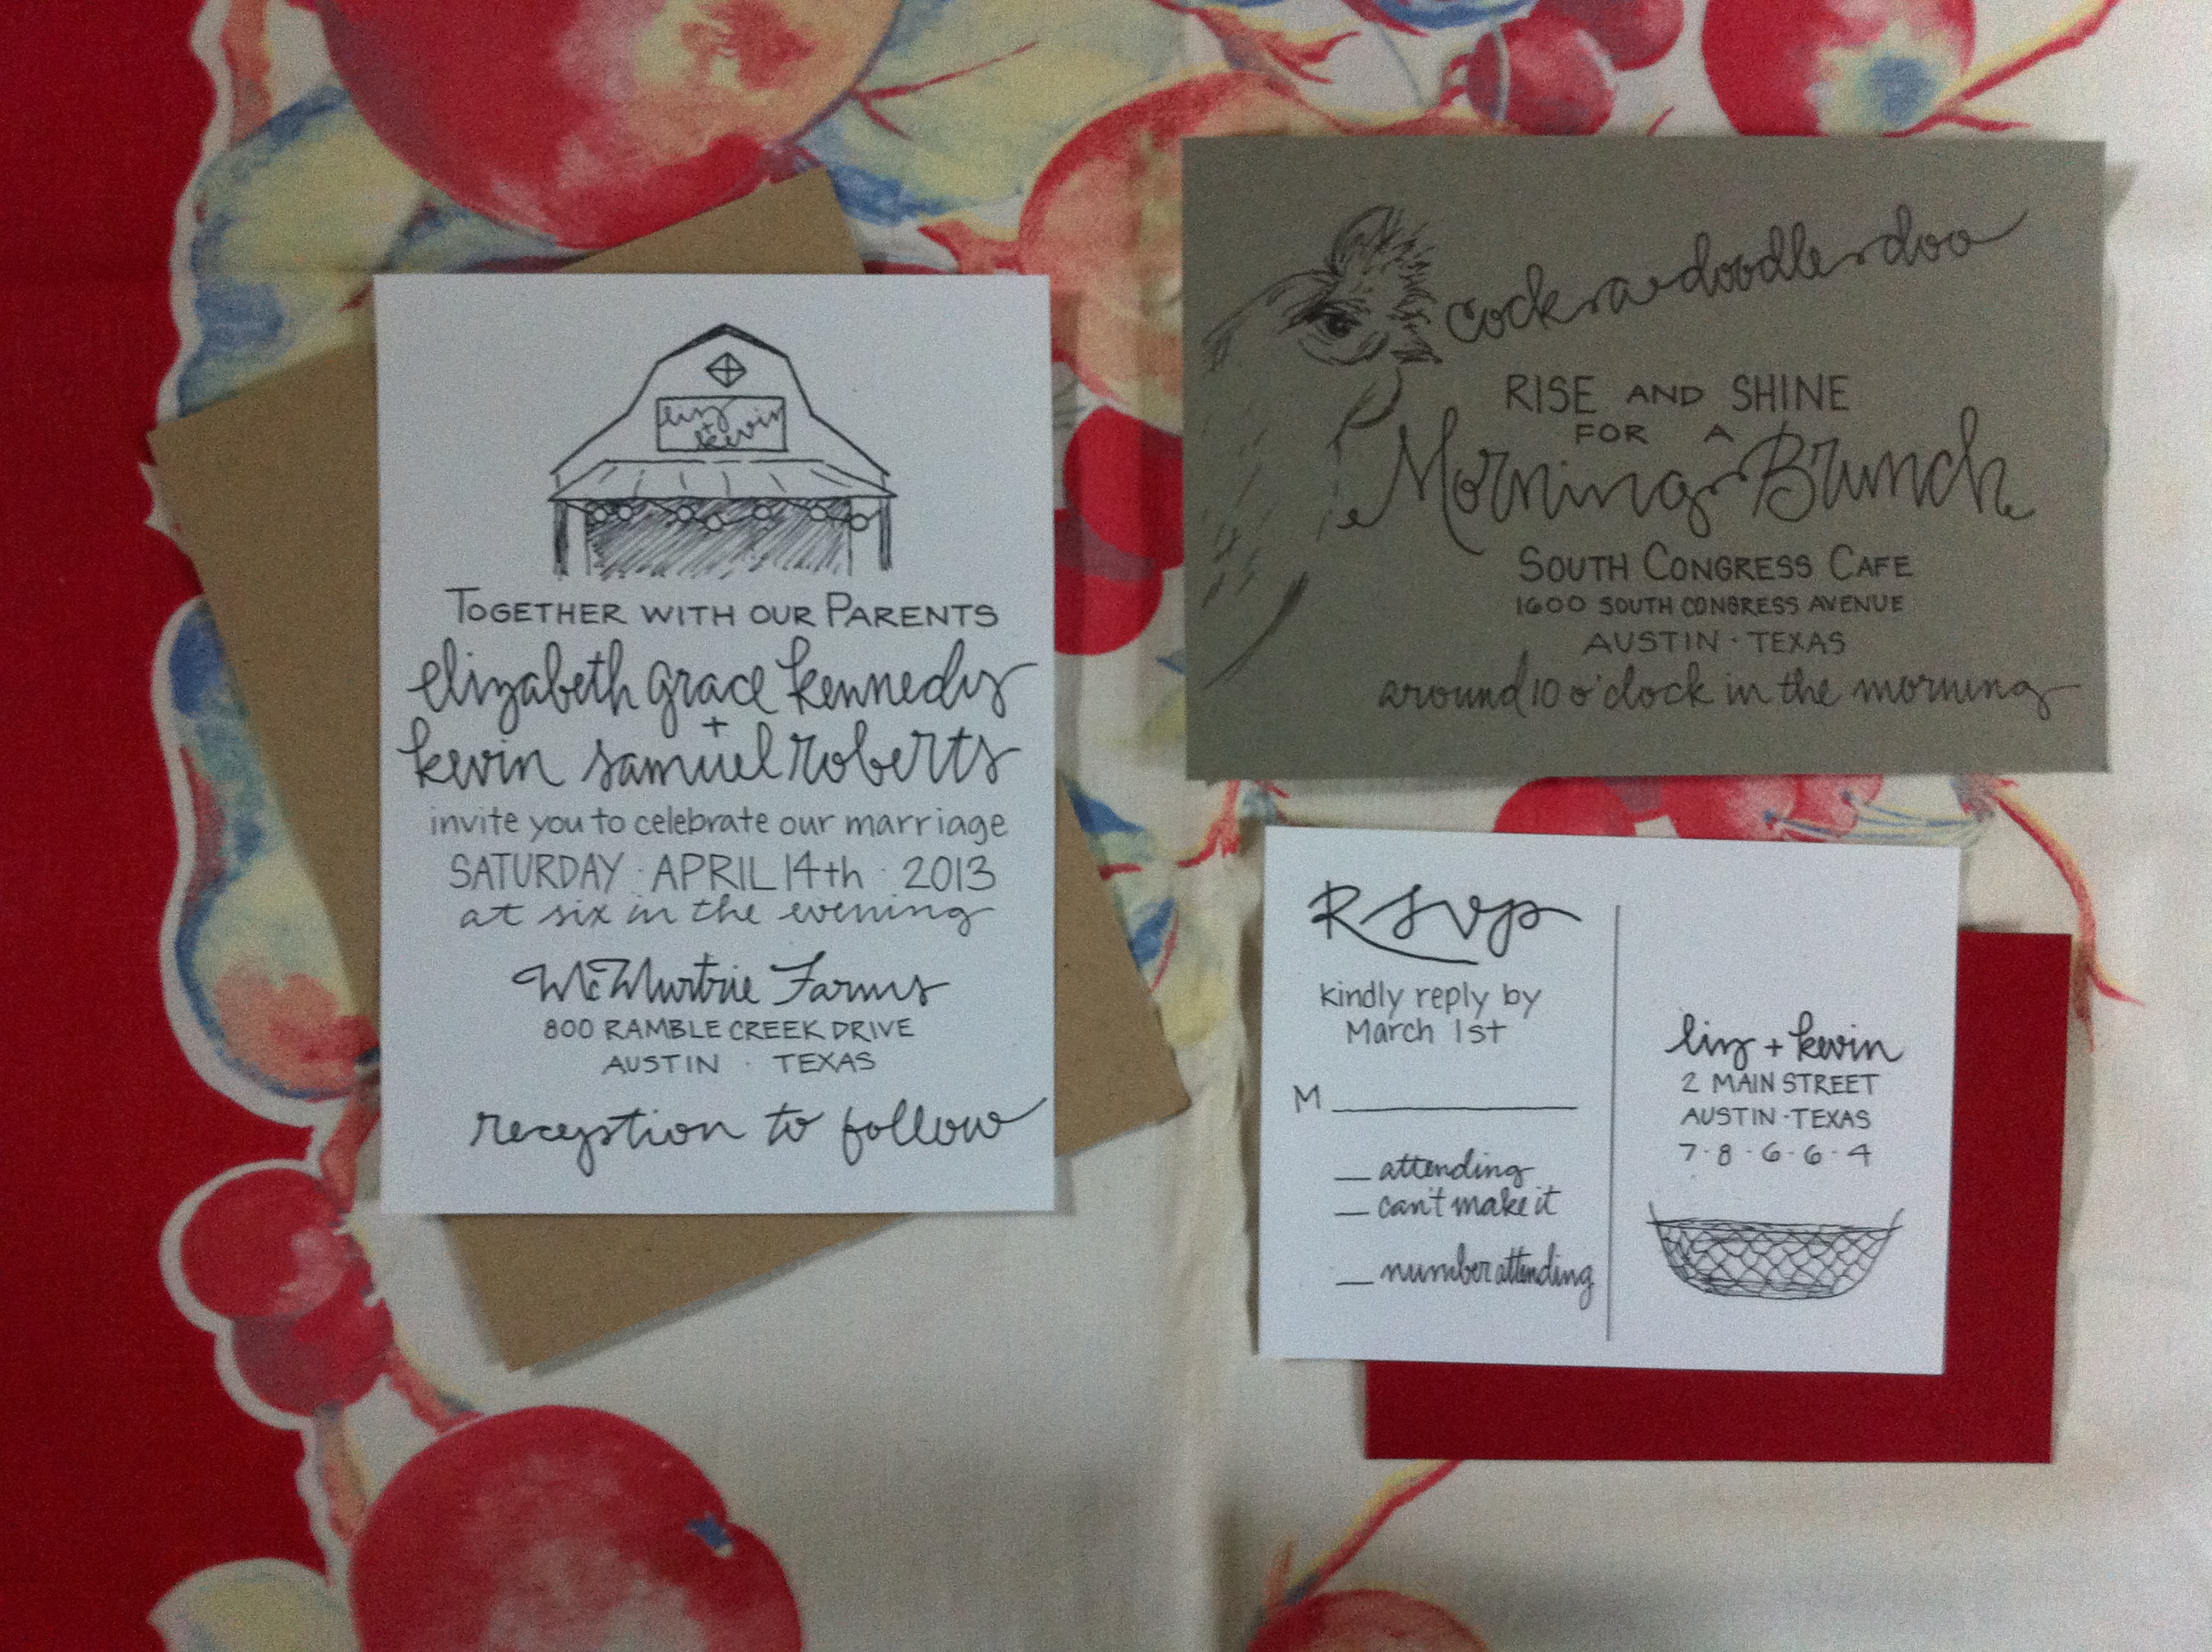 liz
+
kevin
TOGETHER WITH OUR PARENTS
elizabeth grace kennedy
+
kevin samuel roberts
invite you to celebrate our marriage
SATURDAY · APRIL 14th · 2013
at six in the evening
McMurtrie Farms
800 RAMBLE CREEK DRIVE
AUSTIN · TEXAS
reception to follow
cock-a-doodle-doo
RISE AND SHINE
FOR A
Morning Brunch
SOUTH CONGRESS CAFE
1600 SOUTH CONGRESS AVENUE
AUSTIN · TEXAS
around 10 o'clock in the morning
RSVP
kindly reply by
March 1st
M
attending
can't make it
number attending
liz + kevin
2 MAIN STREET
AUSTIN · TEXAS
7 · 8 · 6 · 6 · 4